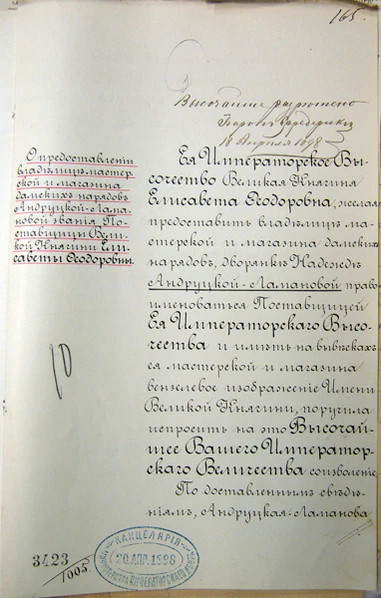 165.
Высочайше разрешено
Баронъ Фредериксъ
18 Апрѣля 1898
О предоставленіи
владѣлицѣ мастер-
ской и магазина
дамскихъ нарядовъ
Андруцкой-Лама-
новой званія По-
ставщицы Вели-
кой Княгини Ели-
саветы Ѳеодоровны.
Ея Императорское Вы-
сочество Великая Княгиня
Елисавета Ѳеодоровна, желая
предоставить владѣлицѣ ма-
стерской и магазина дамскихъ
нарядовъ, дворянкѣ Надеждѣ
Андруцкой-Ламановой право
именоваться Поставщицей
Ея Императорскаго Высо-
чества и имѣть на вывѣскахъ
ея мастерской и магазина
вензелевое изображеніе Имени
Великой Княгини, поручила
испросить на это Высочай-
шее Вашего Император-
скаго Величества соизволеніе.
По доставленнымъ свѣдѣ-
ніямъ, Андруцкая-Ламанова
10
3423
1005.
КАНЦЕЛЯРІЯ
20 АПР. 1898
МИНИСТЕРСТВА ИМПЕРАТОРСКАГО ДВОРА